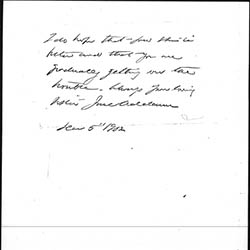 I do hope that your throat is
better and that you are
gradually getting over the
trouble. Always your loving
sister Jane Addams
Dec 5" 1902